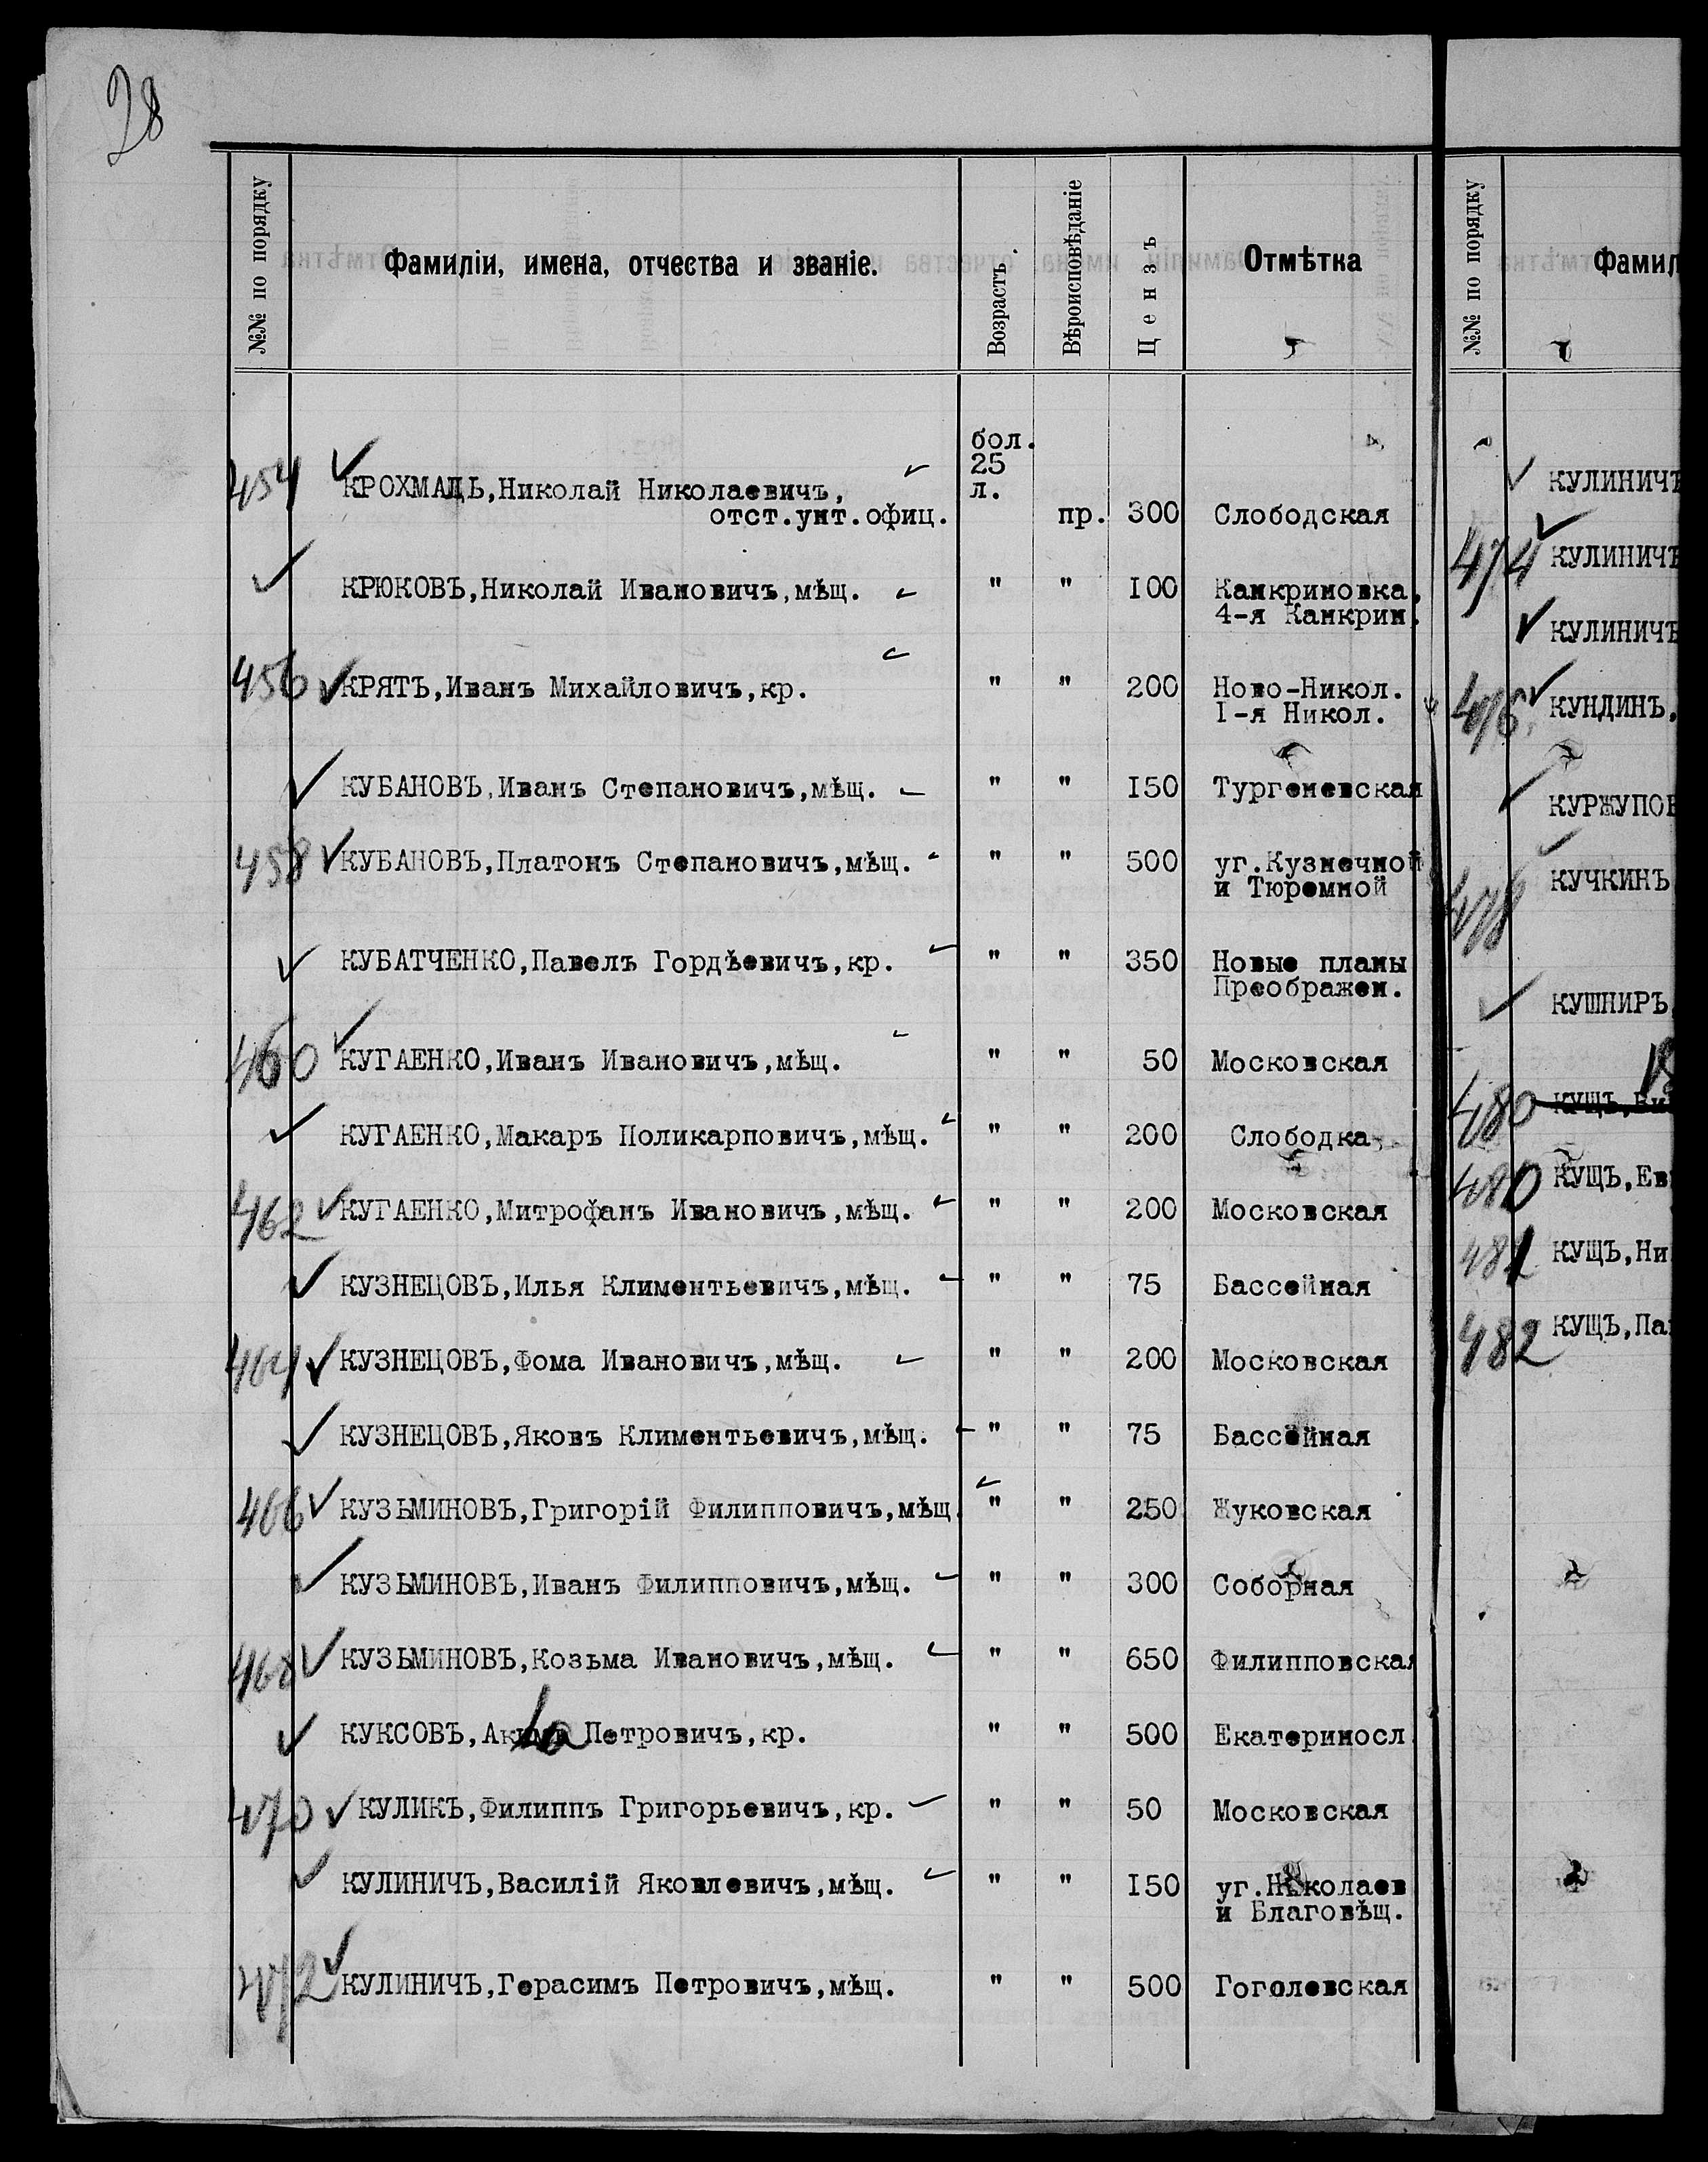 28
№№ по порядку
Фамиліи, имена, отчества и званіе.
Возрастъ
Вѣроисповѣданіе
Цензъ
Отмѣтка
бол.
25
л.
454 КРОХМАЛЬ,Николай Николаевичъ,
отст.унт.офиц. пр. 300 Слободская
КРЮКОВЪ,Николай Ивановичъ,мѣщ. " " 100 Канкриновка,
4-я Канкрин.
456 КРЯТЪ,Иванъ Михайловичъ,кр. " " 200 Ново-Никол.
I-я Никол.
КУБАНОВЪ,Иванъ Степановичъ,мѣщ. " " 150 Тургеневская
458 КУБАНОВЪ,Платонъ Степановичъ,мѣщ. " " 500 уг.Кузнечной
и Тюремной
КУБАТЧЕНКО,Павелъ Гордѣевичъ,кр. " " 350 Новые планы
Преображен.
460 КУГАЕНКО,Иванъ Ивановичъ,мѣщ. " " 50 Московская
КУГАЕНКО,Макаръ Поликарповичъ,мѣщ. " " 200 Слободка
462 КУГАЕНКО,Митрофанъ Ивановичъ,мѣщ. " " 200 Московская
КУЗНЕЦОВЪ,Илья Климентьевичъ,мѣщ. " " 75 Бассейная
464 КУЗНЕЦОВЪ,Фома Ивановичъ,мѣщ. " " 200 Московская
КУЗНЕЦОВЪ,Яковъ Климентьевичъ,мѣщ. " " 75 Бассейная
466 КУЗЬМИНОВЪ,Григорій Филипповичъ,мѣщ. " " 250 Жуковская
КУЗЬМИНОВЪ,Иванъ Филипповичъ,мѣщ. " " 300 Соборная
468 КУЗЬМИНОВЪ,Козьма Ивановичъ,мѣщ. " " 650 Филипповская
КУКСОВЪ, Петровичъ,кр. " " 500 Екатериносл.
470 КУЛИКЪ,Филиппъ Григорьевичъ,кр. " " 50 Московская
КУЛИНИЧЪ,Василій Яковлевичъ,мѣщ. " " 150 уг.Николаев
и Благовѣщ.
472 КУЛИНИЧЪ,Герасимъ Петровичъ,мѣщ. " " 500 Гоголевская
№№ по порядку
Фамил
КУЛИНИЧЪ
474 КУЛИНИЧЪ
КУЛИНИЧЪ
476 КУНДИНЪ,
КУРЖУПОВ
478 КУЧКИНЪ
КУШНИРЪ,
480 КУЩЪ,
480 КУЩЪ,Ев
481 КУЩЪ,Ни
482 КУЩЪ,Па